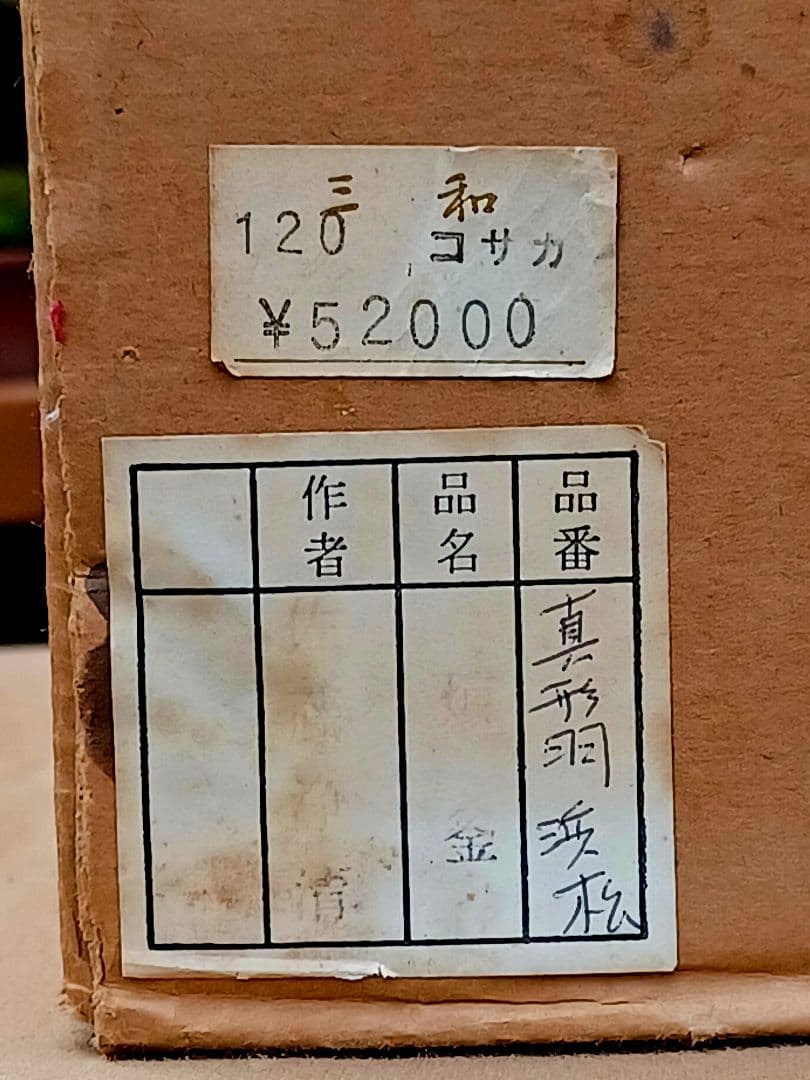 三 和
120 コサカ
¥52000
品番
真形羽 浜松
品名
釜
作者